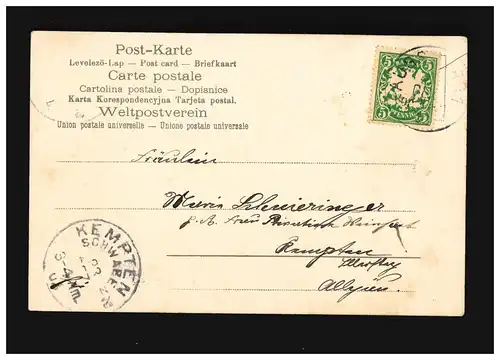 Post-Karte
Levelező-Lap — Post card — Briefkaart
Carte postale
Cartolina postale — Dopisnice
Karta Korespondencyjna Tarjeta postal.
Weltpostverein
Union postale universelle — Unione postale universale
5 5
PFENNIG
5 5
Fräulein
Maria
Kempten
Allgäu
KEMPTEN
SCHWABEN